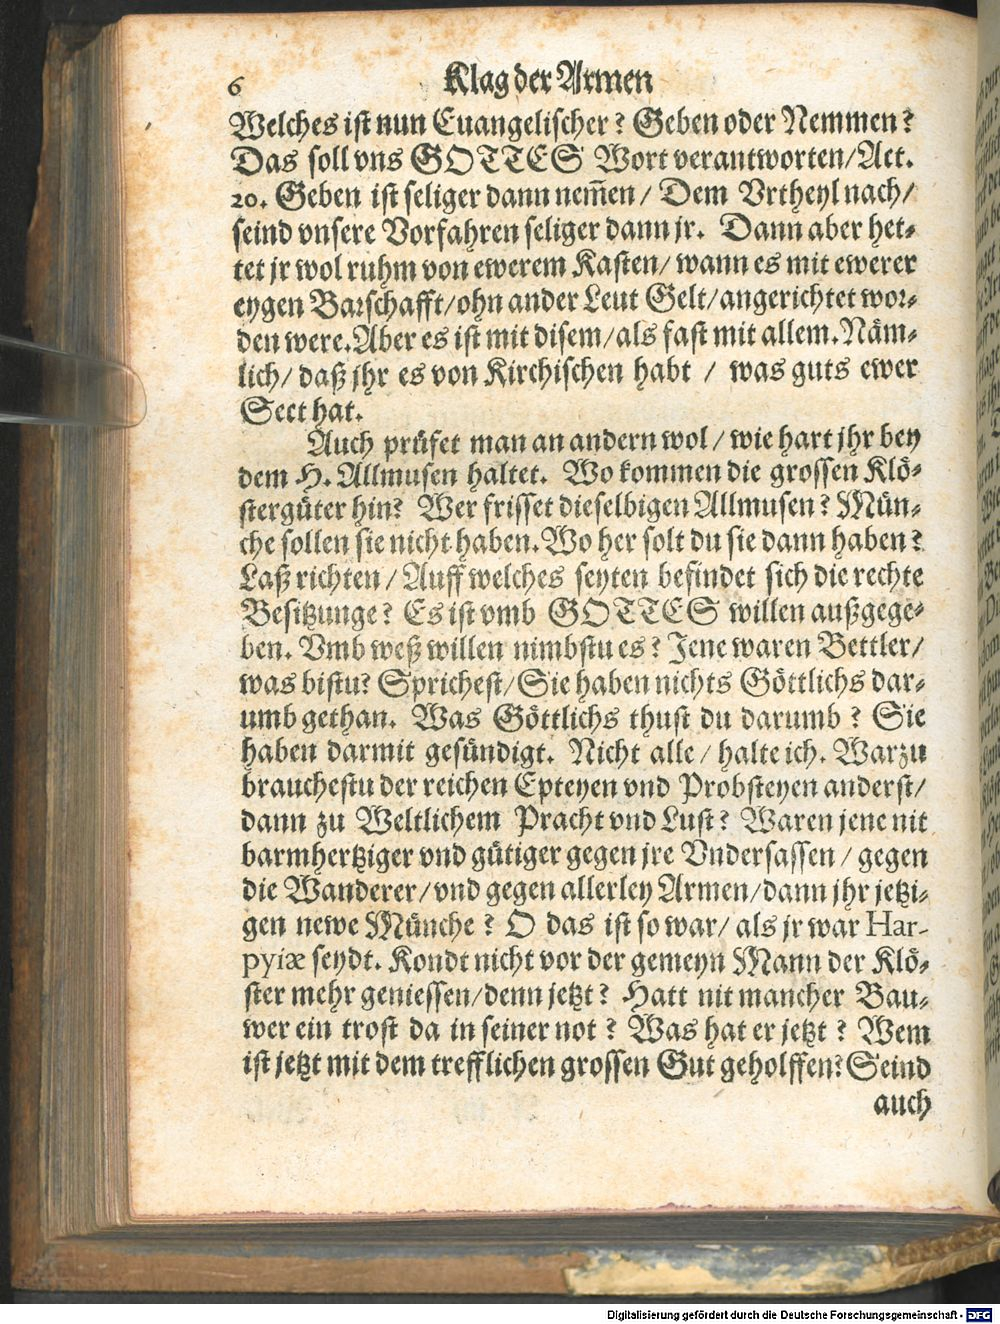 6 Klag der Armen
Welches ist nun Euangelischer? Geben oder Nemmen?
Das soll vns GOTTES Wort verantworten/Act.
20. Geben ist seliger dann nem̄en/ Dem Vrtheyl nach/
seind vnsere Vorfahren seliger dann jr. Dann aber het-
tet jr wol ruhm von ewerem Kasten/ wann es mit ewerer
eygen Barschafft/ohn ander Leut Gelt/angerichtet wor-
den were. Aber es ist mit disem/als fast mit allem. Näm-
lich/ daß jhr es von Kirchischen habt / was guts ewer
Sect hat.
Auch prüfet man an andern wol/ wie hart jhr bey
dem H. Allmusen haltet. Wo kommen die grossen Klö-
stergüter hin? Wer frisset dieselbigen Allmusen? Mün-
che sollen sie nicht haben. Wo her solt du sie dann haben?
Laß richten/ Auff welches seyten befindet sich die rechte
Besitzunge? Es ist vmb GOTTES willen außgege-
ben. Vmb weß willen nimbstu es? Jene waren Bettler/
was bistu? Sprichest/ Sie haben nichts Göttlichs dar-
umb gethan. Was Göttlichs thust du darumb? Sie
haben darmit gesündigt. Nicht alle/ halte ich. Warzu
brauchestu der reichen Epteyen vnd Probsteyen anderst/
dann zu Weltlichem Pracht vnd Lust? Waren jene nit
barmhertziger vnd gütiger gegen jre Vndersassen/ gegen
die Wanderer/vnd gegen allerley Armen/dann jhr jetzi-
gen newe Münche? O das ist so war/ als jr war Har-
pyiæ seydt. Kondt nicht vor der gemeyn Mann der Klö-
ster mehr geniessen/denn jetzt? Hatt nit mancher Bau-
wer ein trost da in seiner not? Was hat er jetzt? Wem
ist jetzt mit dem trefflichen grossen Gut geholffen? Seind
auch
Digitalisierung gefördert durch die Deutsche Forschungsgemeinschaft - DFG